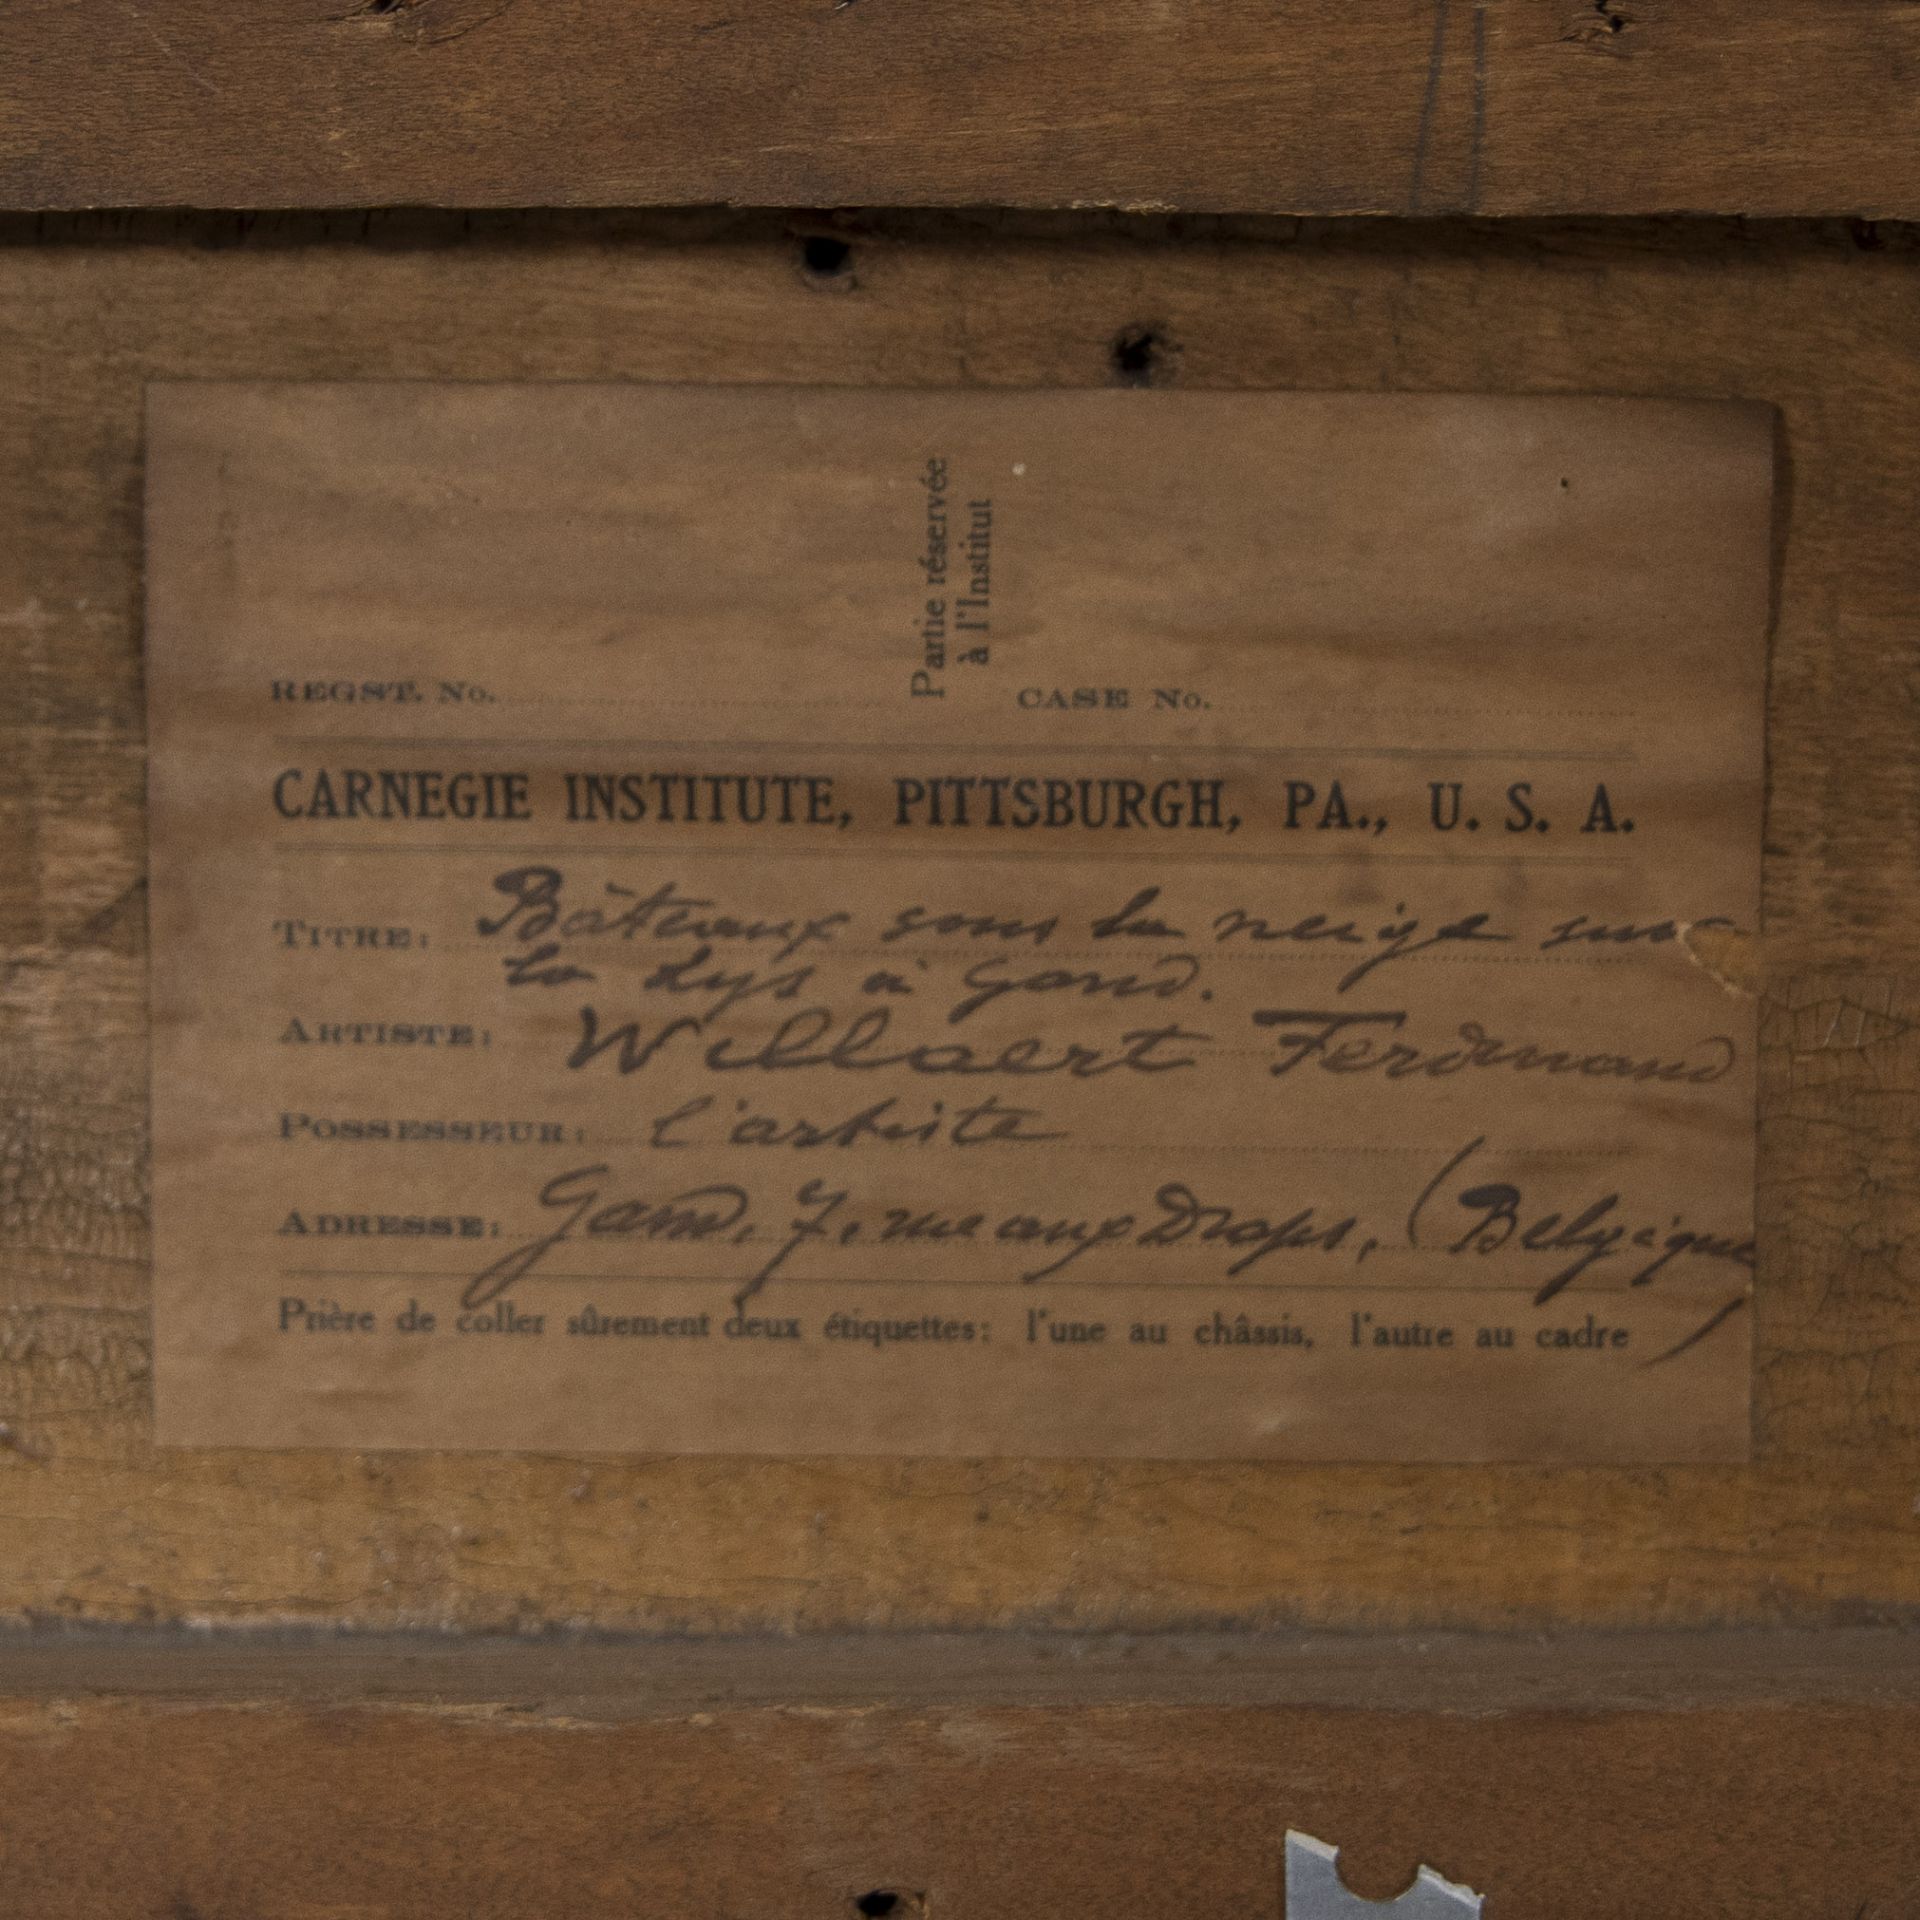 Partie réservée
à l'Institut
REGST. No. CASE No.
CARNEGIE INSTITUTE, PITTSBURGH, PA., U. S. A.
TITRE: Bâteaux sous la neige sur
la Lys à Gand.
ARTISTE: Willaert Ferdinand
POSSESSEUR: l'artiste
ADRESSE: Gand, 7, rue aux Draps, (Belgique)
Prière de coller sûrement deux étiquettes: l'une au châssis, l'autre au cadre